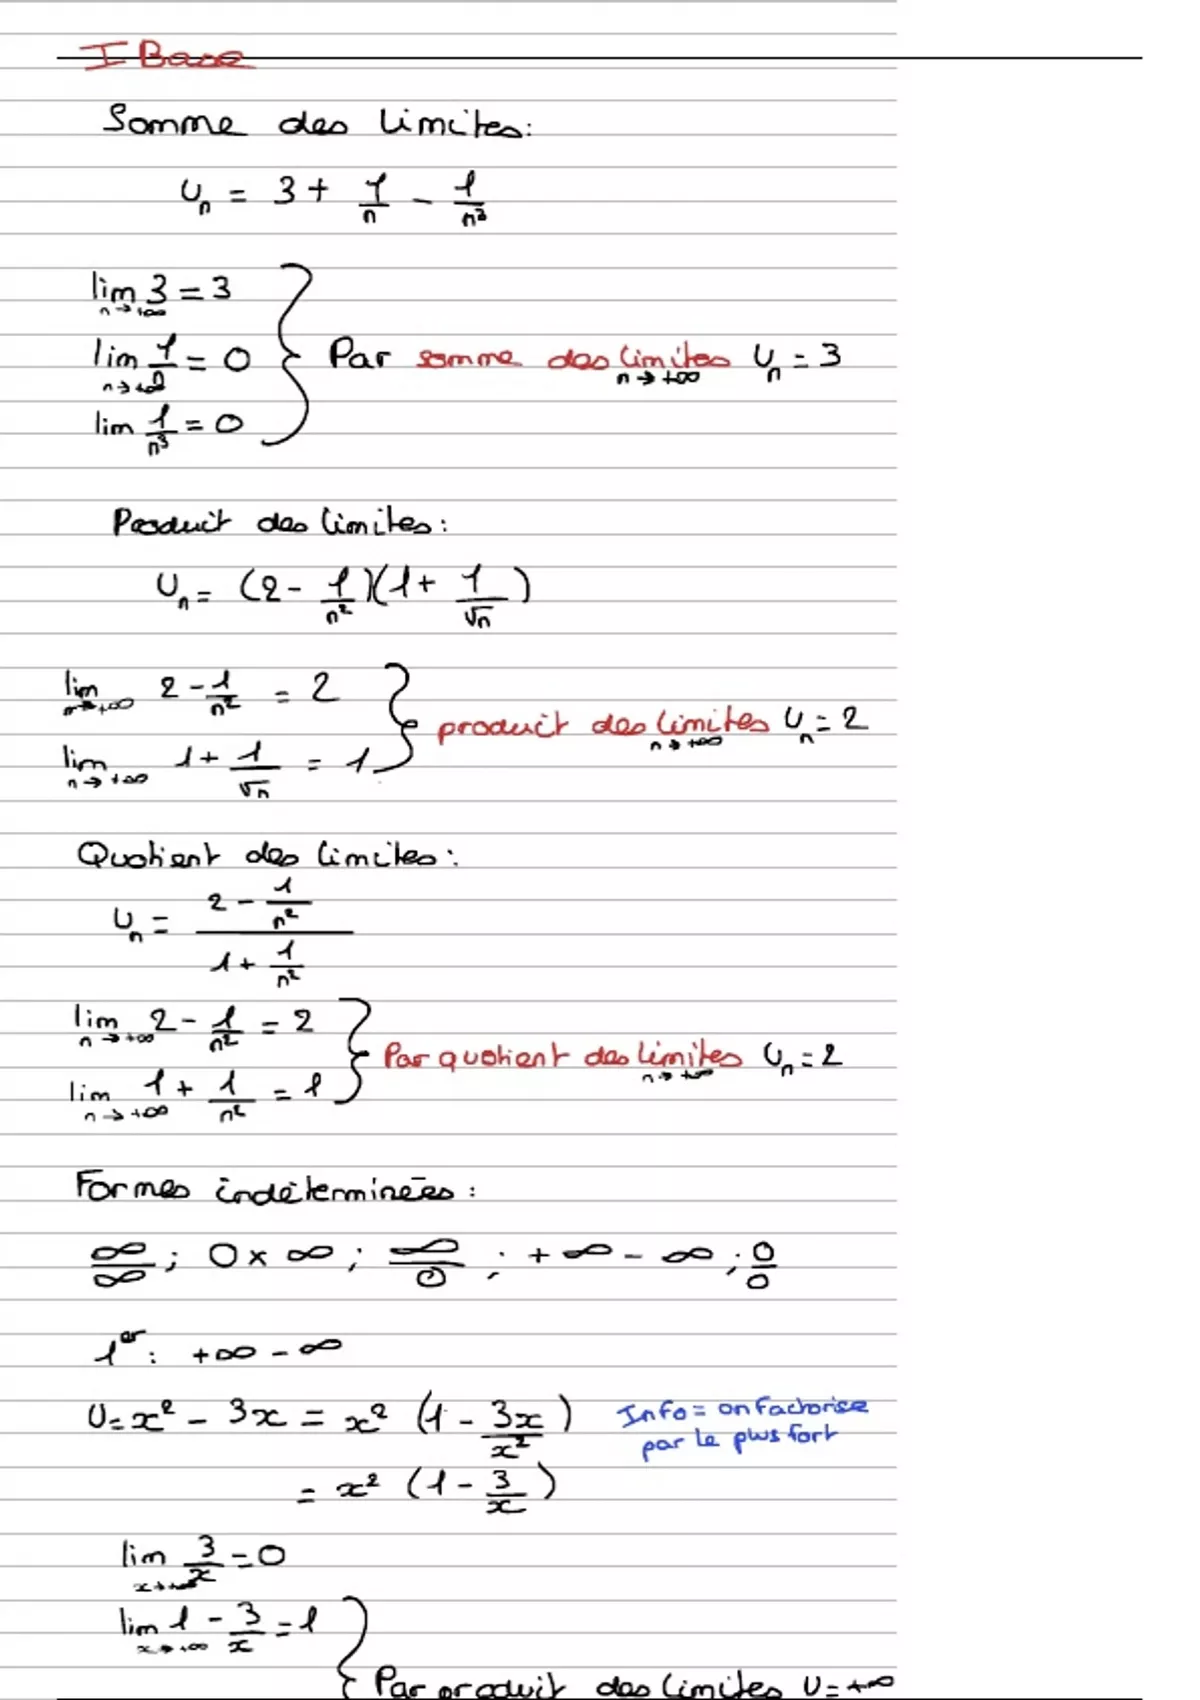 I Base
Somme des limites:
Un = 3 + 1/n - 1/n³
lim 3 = 3
n→+∞
lim 1/n = 0 Par somme des limites Un = 3
n→+∞ n→+∞
lim 1/n³ = 0
Produit des limites:
Un = (2 - 1/n²)(1 + 1/√n)
lim 2 - 1/n² = 2
n→+∞
produit des limites Un = 2
n→+∞
lim 1 + 1/√n = 1
n→+∞
Quotient des limites:
Un = (2 - 1/n²)/(1 + 1/n²)
lim 2 - 1/n² = 2
n→+∞
Par quotient des limites Un = 2
n→+∞
lim 1 + 1/n² = 1
n→+∞
Formes indéterminées:
∞/∞ ; 0 x ∞ ; ∞/0 ; +∞ - ∞ ; 0/0
1er : +∞ - ∞
U = x² - 3x = x² (1 - 3x/x²) Info = on factorise
par le plus fort
= x² (1 - 3/x)
lim 3/x = 0
x→+∞
lim 1 - 3/x = 1
x→+∞
Par produit des limites U = +∞